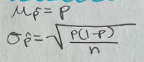 μp̂ = p
σp̂ = √(p(1-p)/n)